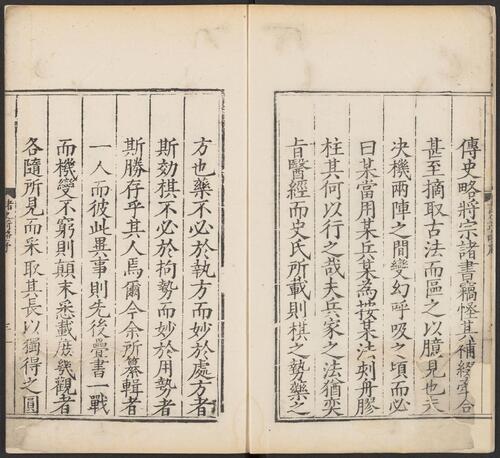 傳史略將宗諸書竊怪其補綴牽合
甚至摘取古法而區之以臆見也夫
決機兩陣之間變幻呼吸之頃而必
曰某當用某兵某為按某法刺舟膠
柱其何以行之哉夫兵家之法猶奕
旨醫經而史氏所載則棋之勢藥之
方也藥不必於執方而妙於處方者
斯効棋不必於拘勢而妙於用勢者
斯勝存乎其人焉爾今余所纂輯者
一人而彼此異事則先後疊書一戰
而機變不窮則顛末悉載庶幾觀者
各隨所見而采取其長以獨得之圓